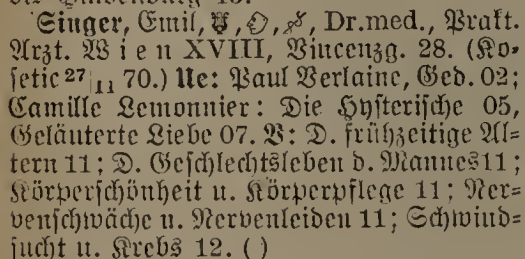 Singer, Emil, Dr.med., Prakt.
Arzt. Wien XVIII, Vincenzg. 28. (Ko-
setic 27|11 70.) Ue: Paul Verlaine, Ged. 02;
Camille Lemonnier: Die Hysterische 05,
Geläuterte Liebe 07. V: D. frühzeitige Al-
tern 11; D. Geschlechtsleben d. Mannes 11;
Körperschönheit u. Körperpflege 11; Ner-
venschwäche u. Nervenleiden 11; Schwind-
sucht u. Krebs 12. ( )